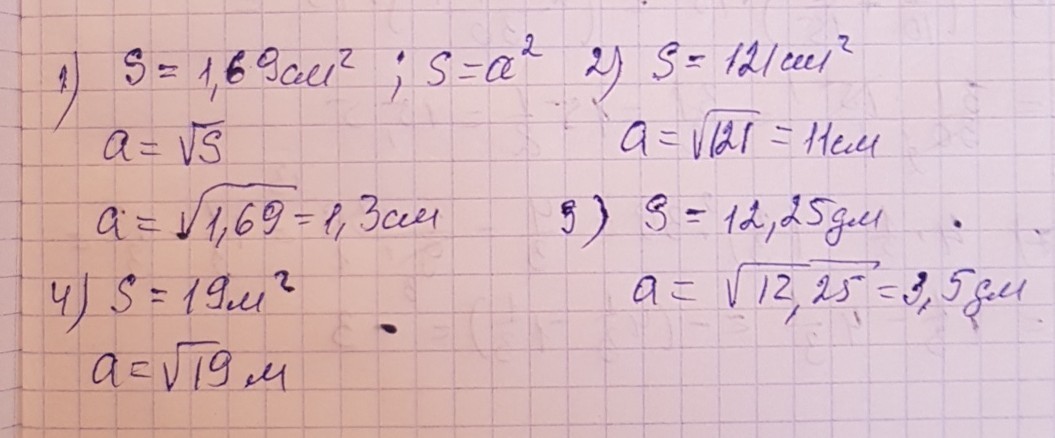 1) S = 1,69см² ; S = a²
a = √S
a = √1,69 = 1,3см
2) S = 121см²
a = √121 = 11см
3) S = 12,25дм
a = √12,25 = 3,5дм
4) S = 19м²
a = √19 м